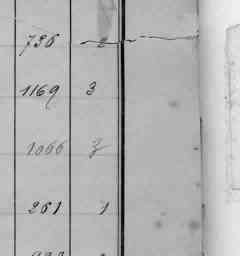 736 2
1169 3
1066 3
261 1